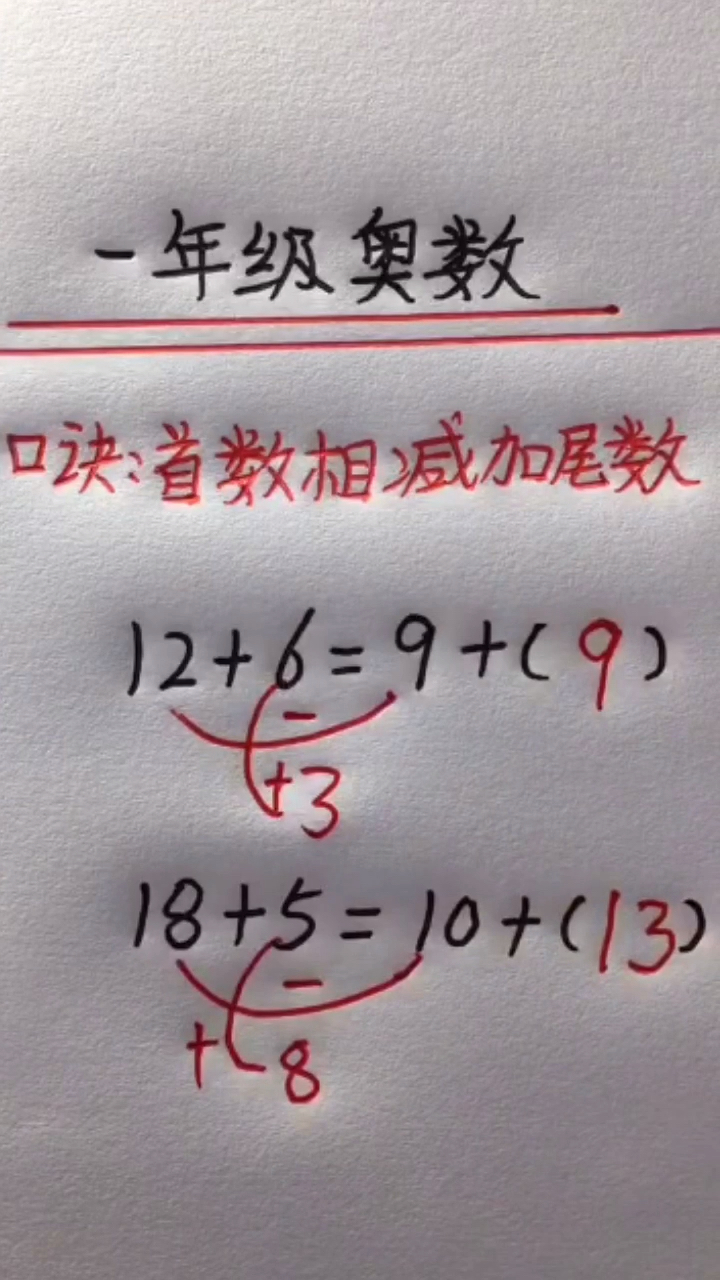 一年级奥数
口诀:首数相减加尾数
12+6=9+(9)
-
+3
18+5=10+(13)
-
+8